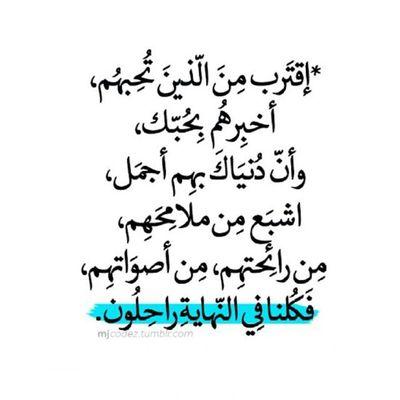 *إقتَرب مِنَ الّذينَ تُحِبهُم،
أخبِرهُم بِحُبّك،
وأنّ دُنيَاكَ بهِم أجمَل،
اشبَع مِن ملامِحَهِم،
مِن رائِحتهِم، مِن أصوَاتهِم،
فَكُلنا فِي النّهايةِ راحِلُون.
mjcodez.tumblr.com